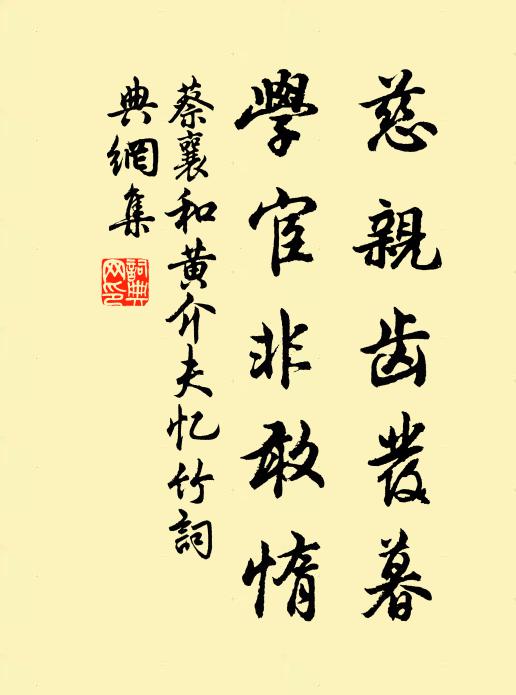 慈親齒發暮
學宦非敢惰
蔡襄和黃介夫忆竹詞
典網集
詞典
网印